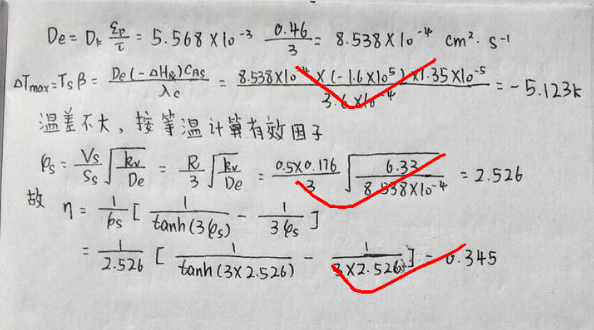 De = Dk εp/τ = 5.568×10⁻³ 0.46/3 = 8.538×10⁻⁴ cm²·s⁻¹
ΔTmax=Tsβ = De(-ΔHR)CAS/λc = 8.538×10⁻⁴×(-1.6×10⁵)×1.35×10⁻⁵/3.6×10⁻⁴ = -5.123k
温差不大，按等温计算有效因子
φs = Vs/Ss √(kv/De) = R/3 √(kv/De) = 0.5×0.176/3 √(6.33/8.538×10⁻⁴) = 2.526
故 η = 1/φs [1/tanh(3φs) - 1/3φs]
= 1/2.526 [1/tanh(3×2.526) - 1/3×2.526] = 0.345